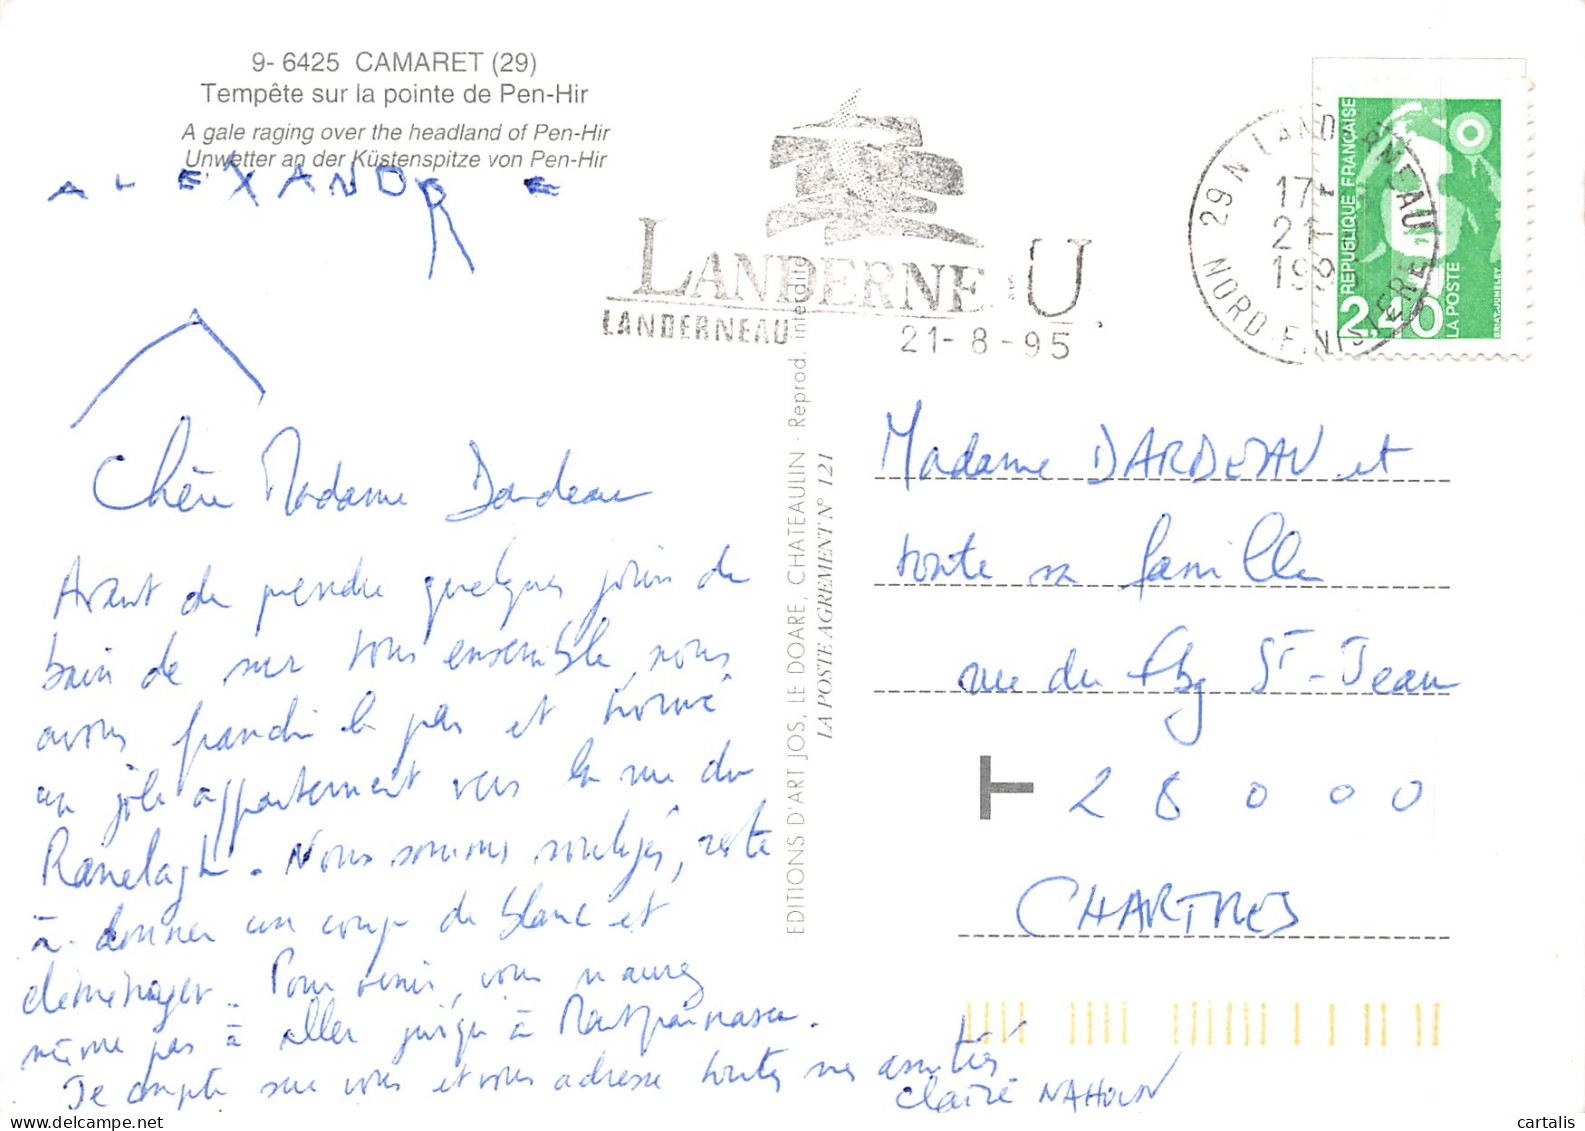 9- 6425 CAMARET (29)
Tempête sur la pointe de Pen-Hir
A gale raging over the headland of Pen-Hir
Unwetter an der Küstenspitze von Pen-Hir
ALEXANDRE
Chère Madame Dardeau
Avant de prendre quelques jours de
bain de mer tous ensemble, nous
avons franchi le pas et trouvé
un joli appartement vers la rue du
Ranelagh. Nous sommes soulagés, reste
à donner un coup de blanc et
déménager. Pour venir, vous n'aurez
même pas à aller jusqu'à Montparnasse.
Je compte sur vous et vous adresse toutes mes amitiés.
Claire NAHOUN
EDITIONS D'ART JOS, LE DOARE, CHATEAULIN - Reprod. interdite
LA POSTE AGREMENT N° 121
LANDERNEAU
LANDERNEAU
21-8-95
29 N LANDERNEAU
17
21
199
NORD FINISTERE
REPUBLIQUE FRANÇAISE
2,40
LA POSTE
BRIAT-JUMELET
Madame DARDEAU et
toute sa famille
rue du Fbg St-Jean
T 28000
CHARTRES
cartalis